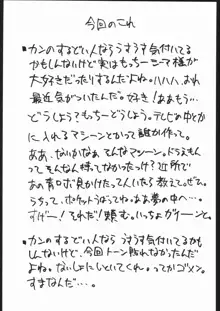 今回のこれ
・カンのするどい人ならうすうす気付いてる
かもしんないけど実はもっちーって様が
大好きだったりするんだよね。ハハハ、おれ
最近気がついたんだ。好き!ああもう…
どうしよう?もっちーどうしよう。テレビの中とか
に入れるマシーンとかって誰か作って。
ああ、ないかなぁ、てんなマシーン。ドラえもん
ってそんなん持ってなかったっけ?近所で
あの青ロボ見かけたって人いたら教えて。ぜったい。
うちって、ポケットうばってね。ああ夢の中へ…。
すげー!それだ!頼む。いっちょガツーンと。
・カンのするどい人なら うすうす気付いてるかも
しんないけど、今回トーン貼れなかったんだ
よね。ないしょにしといてくれ。ってかゴメン。
すまなんだ…。